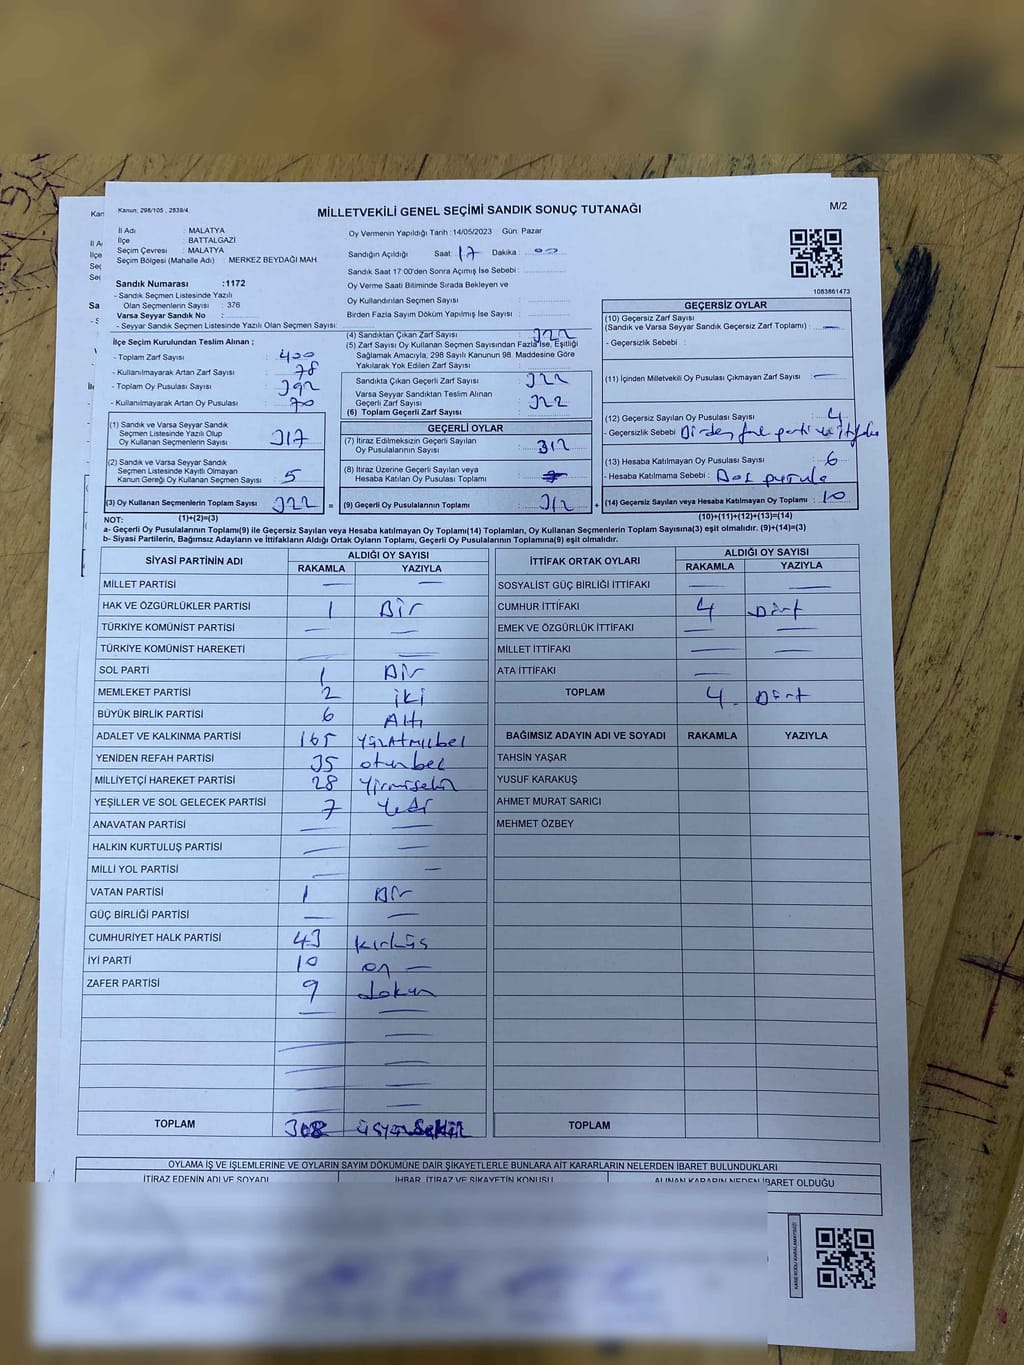 Kanun; 298/105 , 2839/4.
MİLLETVEKİLİ GENEL SEÇİMİ SANDIK SONUÇ TUTANAĞI
M/2
İl Adı : MALATYA
İlçe : BATTALGAZİ
Seçim Çevresi : MALATYA
Seçim Bölgesi (Mahalle Adı) : MERKEZ BEYDAĞI MAH.
Sandık Numarası :1172
- Sandık Seçmen Listesinde Yazılı
Olan Seçmenlerin Sayısı : 376
Varsa Seyyar Sandık No :
- Seyyar Sandık Seçmen Listesinde Yazılı Olan Seçmen Sayısı:
Oy Vermenin Yapıldığı Tarih :14/05/2023 Gün: Pazar
Sandığın Açıldığı Saat: 17 Dakika : 00
Sandık Saat 17:00'den Sonra Açımış İse Sebebi :
Oy Verme Saati Bitiminde Sırada Bekleyen ve
Oy Kullandırılan Seçmen Sayısı :
Birden Fazla Sayım Döküm Yapılmış İse Sayısı :
1083861473
İlçe Seçim Kurulundan Teslim Alınan ;
- Toplam Zarf Sayısı : 400
- Kullanılmayarak Artan Zarf Sayısı : 78
- Toplam Oy Pusulası Sayısı : 392
- Kullanılmayarak Artan Oy Pusulası : 70
(1) Sandık ve Varsa Seyyar Sandık
Seçmen Listesinde Yazılı Olup
Oy Kullanan Seçmenlerin Sayısı : 317
(2) Sandık ve Varsa Seyyar Sandık
Seçmen Listesinde Kayıtlı Olmayan
Kanun Gereği Oy Kullanan Seçmen Sayısı : 5
(3) Oy Kullanan Seçmenlerin Toplam Sayısı : 322
(1)+(2)=(3)
(4) Sandıktan Çıkan Zarf Sayısı : 322
(5) Zarf Sayısı Oy Kullanan Seçmen Sayısından Fazla İse, Eşitliği
Sağlamak Amacıyla; 298 Sayılı Kanunun 98. Maddesine Göre
Yakılarak Yok Edilen Zarf Sayısı :
Sandıkta Çıkan Geçerli Zarf Sayısı : 322
Varsa Seyyar Sandıktan Teslim Alınan
Geçerli Zarf Sayısı : 322
(6) Toplam Geçerli Zarf Sayısı :
GEÇERLİ OYLAR
(7) İtiraz Edilmeksizin Geçerli Sayılan
Oy Pusulalarının Sayısı : 312
(8) İtiraz Üzerine Geçerli Sayılan veya
Hesaba Katılan Oy Pusulası Toplamı :
= (9) Geçerli Oy Pusulalarının Toplamı : 312
GEÇERSİZ OYLAR
(10) Geçersiz Zarf Sayısı
(Sandık ve Varsa Seyyar Sandık Geçersiz Zarf Toplamı) : —
- Geçersizlik Sebebi :
(11) İçinden Milletvekili Oy Pusulası Çıkmayan Zarf Sayısı : —
(12) Geçersiz Sayılan Oy Pusulası Sayısı : 4
- Geçersizlik Sebebi :
(13) Hesaba Katılmayan Oy Pusulası Sayısı : 6
- Hesaba Katılmama Sebebi :
+ (14) Geçersiz Sayılan veya Hesaba Katılmayan Oy Toplamı : 10
(10)+(11)+(12)+(13)=(14)
NOT:
a- Geçerli Oy Pusulalarının Toplamı(9) ile Geçersiz Sayılan veya Hesaba katılmayan Oy Toplamı(14) Toplamları, Oy Kullanan Seçmenlerin Toplam Sayısına(3) eşit olmalıdır. (9)+(14)=(3)
b- Siyasi Partilerin, Bağımsız Adayların ve İttifakların Aldığı Ortak Oyların Toplamı, Geçerli Oy Pusulalarının Toplamına(9) eşit olmalıdır.
SİYASİ PARTİNİN ADI ALDIĞI OY SAYISI
RAKAMLA YAZIYLA
MİLLET PARTİSİ — —
HAK VE ÖZGÜRLÜKLER PARTİSİ 1 Bir
TÜRKİYE KOMÜNİST PARTİSİ — —
TÜRKİYE KOMÜNİST HAREKETİ — —
SOL PARTİ 1 Bir
MEMLEKET PARTİSİ 2 iki
BÜYÜK BİRLİK PARTİSİ 6 Altı
ADALET VE KALKINMA PARTİSİ 165 yüzAtmışbeş
YENİDEN REFAH PARTİSİ 35 otuzbeş
MİLLİYETÇİ HAREKET PARTİSİ 28 yirmisekiz
YEŞİLLER VE SOL GELECEK PARTİSİ 7 Yedi
ANAVATAN PARTİSİ — —
HALKIN KURTULUŞ PARTİSİ — —
MİLLİ YOL PARTİSİ — —
VATAN PARTİSİ 1 Bir
GÜÇ BİRLİĞİ PARTİSİ — —
CUMHURİYET HALK PARTİSİ 43 kırküç
İYİ PARTİ 10 on —
ZAFER PARTİSİ 9 dokuz
TOPLAM 308 üçyüzSekiz
İTTİFAK ORTAK OYLARI ALDIĞI OY SAYISI
RAKAMLA YAZIYLA
SOSYALİST GÜÇ BİRLİĞİ İTTİFAKI — —
CUMHUR İTTİFAKI 4 Dört
EMEK VE ÖZGÜRLÜK İTTİFAKI — —
MİLLET İTTİFAKI — —
ATA İTTİFAKI —
TOPLAM 4 Dört
BAĞIMSIZ ADAYIN ADI VE SOYADI RAKAMLA YAZIYLA
TAHSİN YAŞAR
YUSUF KARAKUŞ
AHMET MURAT SARICI
MEHMET ÖZBEY
TOPLAM
OYLAMA İŞ VE İŞLEMLERİNE VE OYLARIN SAYIM DÖKÜMÜNE DAİR ŞİKAYETLERLE BUNLARA AİT KARARLARIN NELERDEN İBARET BULUNDUKLARI
İTİRAZ EDENİN ADI VE SOYADI İHBAR, İTİRAZ VE ŞİKAYETİN KONUSU ALINAN KARARIN NEDEN İBARET OLDUĞU